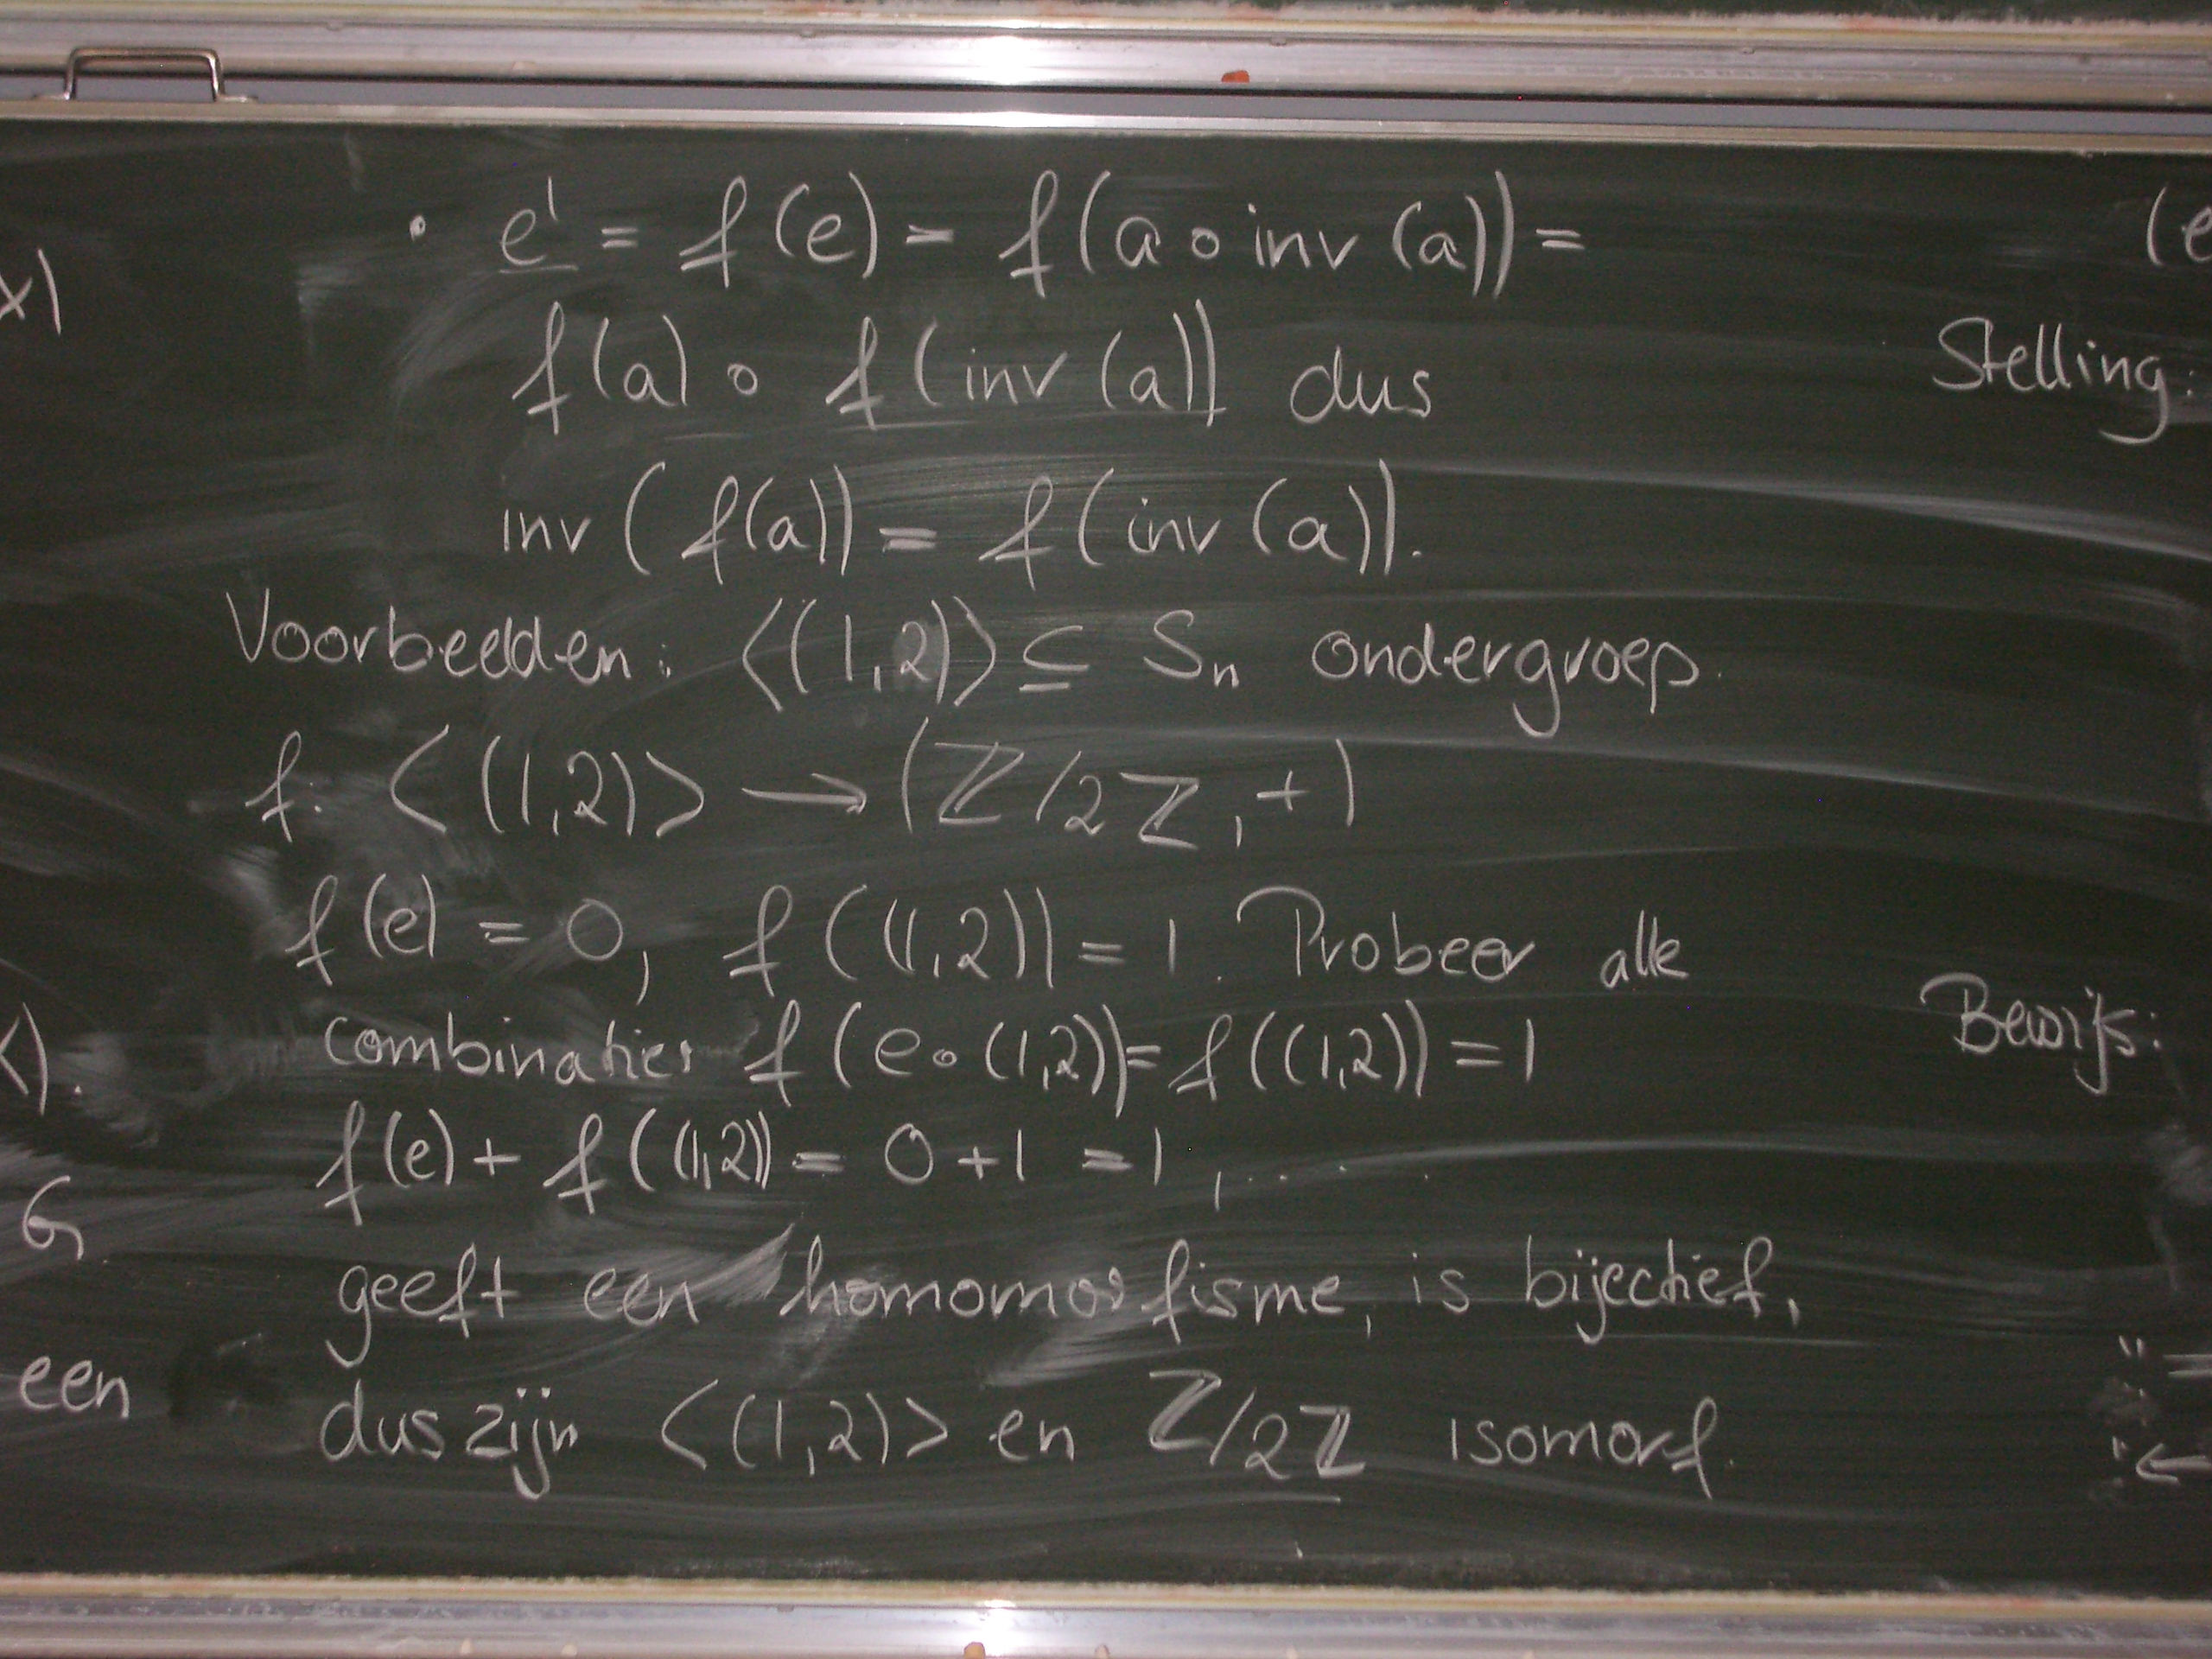 • e' = f(e) = f(a∘inv(a)) =
f(a) ∘ f(inv(a)) dus
inv(f(a)) = f(inv(a)).
Voorbeelden: ⟨(1,2)⟩ ⊆ Sₙ ondergroep.
f: ⟨(1,2)⟩ → (ℤ/2ℤ, +)
f(e) = 0, f((1,2)) = 1. Probeer alle
combinaties f(e∘(1,2)) = f((1,2)) = 1
f(e) + f((1,2)) = 0 + 1 = 1, ...
geeft een homomorfisme, is bijectief,
dus zijn ⟨(1,2)⟩ en ℤ/2ℤ isomorf.
x)
).
G
een
(e
Stelling:
Bewijs:
"